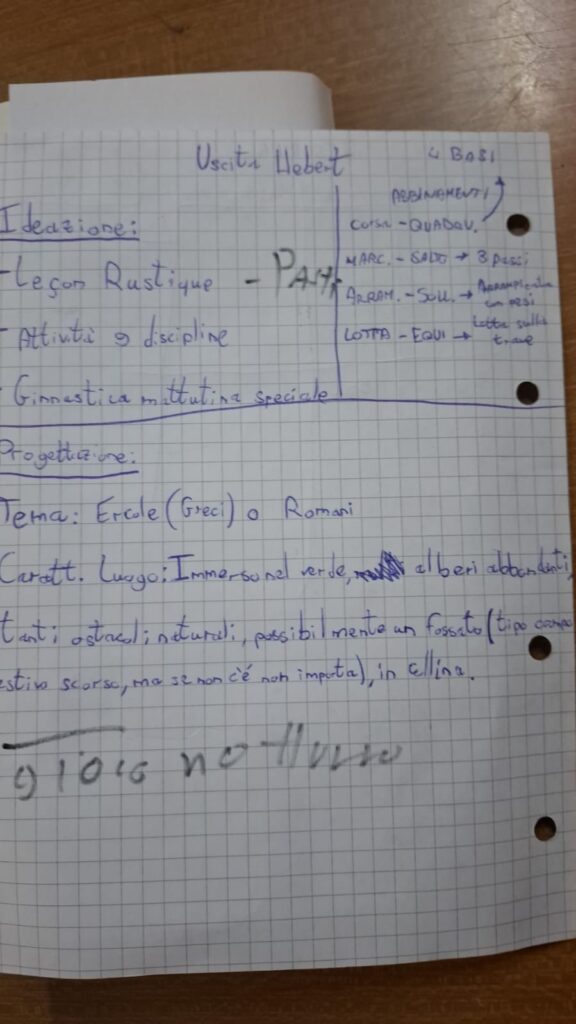 Uscita Hebert
4 BASI
ABBINAMENTI
Ideazione:
CORSA - QUADRU.
- Leçon Rustique - PAM
MARC. - SALTO → 3 passi
ARRAM. - SOLL. → Arrampicata
con pesi
- Attività 9 discipline
LOTTA - EQUI → Lotta sulla
trave
- Ginnastica mattutina speciale
Progettazione:
Tema: Ercole (Greci) o Romani
Caratt. Luogo: Immerso nel verde, alberi abbondanti,
tanti ostacoli naturali, possibilmente un fossato (tipo campo
estivo scorso, ma se non c'è non importa), in collina.
gioco notturno